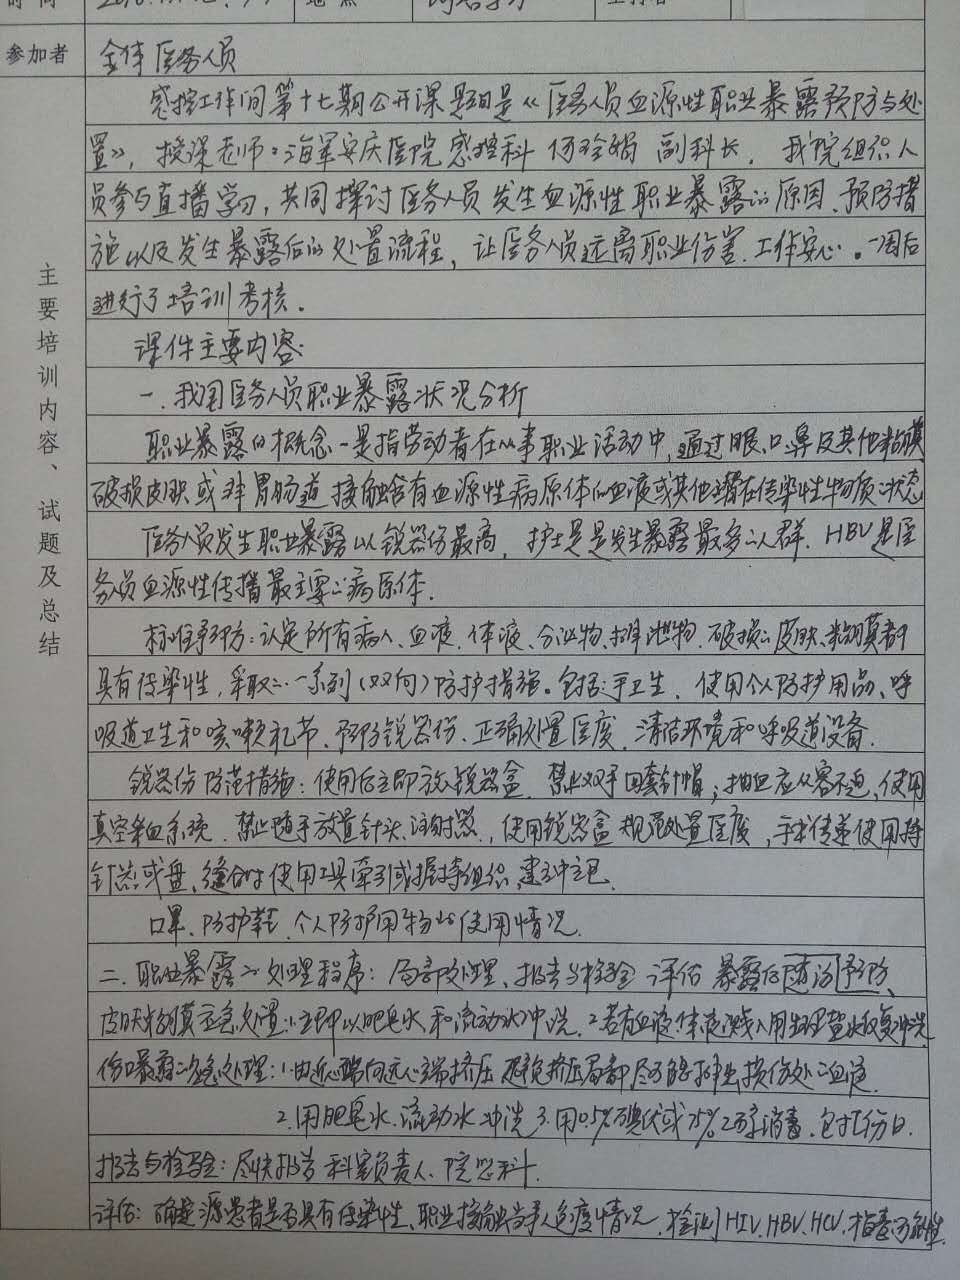 时 间 地 点 主持者
参加者 全体医务人员
主要培训内容、试题及总结
感控工作间第十七期公开课题目是《医务人员血源性职业暴露预防与处
置》，授课老师：海军安庆医院感控科 副科长，我院组织人
员参与直播学习，共同探讨医务人员发生血源性职业暴露的原因、预防措
施以及发生暴露后的处置流程，让医务人员远离职业伤害、工作安心。一周后
进行了培训考核。
课件主要内容：
一、我国医务人员职业暴露状况分析
职业暴露的概念－是指劳动者在从事职业活动中，通过眼、口、鼻及其他粘膜、
破损皮肤或非胃肠道接触含有血源性病原体的血液或其他潜在传染性物质的状态
医务人员发生职业暴露以锐器伤最高，护士是是发生暴露最多的人群，HBV是医
务人员血源性传播最主要的病原体．
标准预防：认定所有病人、血液、体液、分泌物、排泄物、破损的皮肤、粘膜都
具有传染性，采取的一系列（双向）防护措施。包括：手卫生、使用个人防护用品、呼
吸道卫生和咳嗽礼节、预防锐器伤、正确处置医废、清洁环境和呼吸道设备．
锐器伤防范措施：使用后立即放入锐器盒，禁止双手回套针帽；抽血应从容不迫，使用
真空采血系统、禁止随手放置针头、注射器，使用锐器盒规范处置医废，手术传递使用持
针器或盘、缝合时使用工具牵引或握持组织，
口罩、防护鞋、个人防护用物的使用情况．
二、职业暴露的处理程序：局部处理、报告与检验 评估 暴露后 预防、
皮肤粘膜应急处置：1.立即以肥皂水和流动水冲洗．2.若有血液体液溅入用生理盐水反复冲洗
伤口暴露的应急处理：1.由近心端向远心端挤压 避免挤压局部 尽可能挤出损伤处的血液
2.用肥皂水、流动水冲洗 3.用0.5%碘伏或75%乙醇消毒、包扎伤口．
报告与检验：尽快报告科室负责人、院感科．
评估：确定源患者是否具有传染性、职业接触当事人免疫情况、检测HIV、HBV、HCV、梅毒